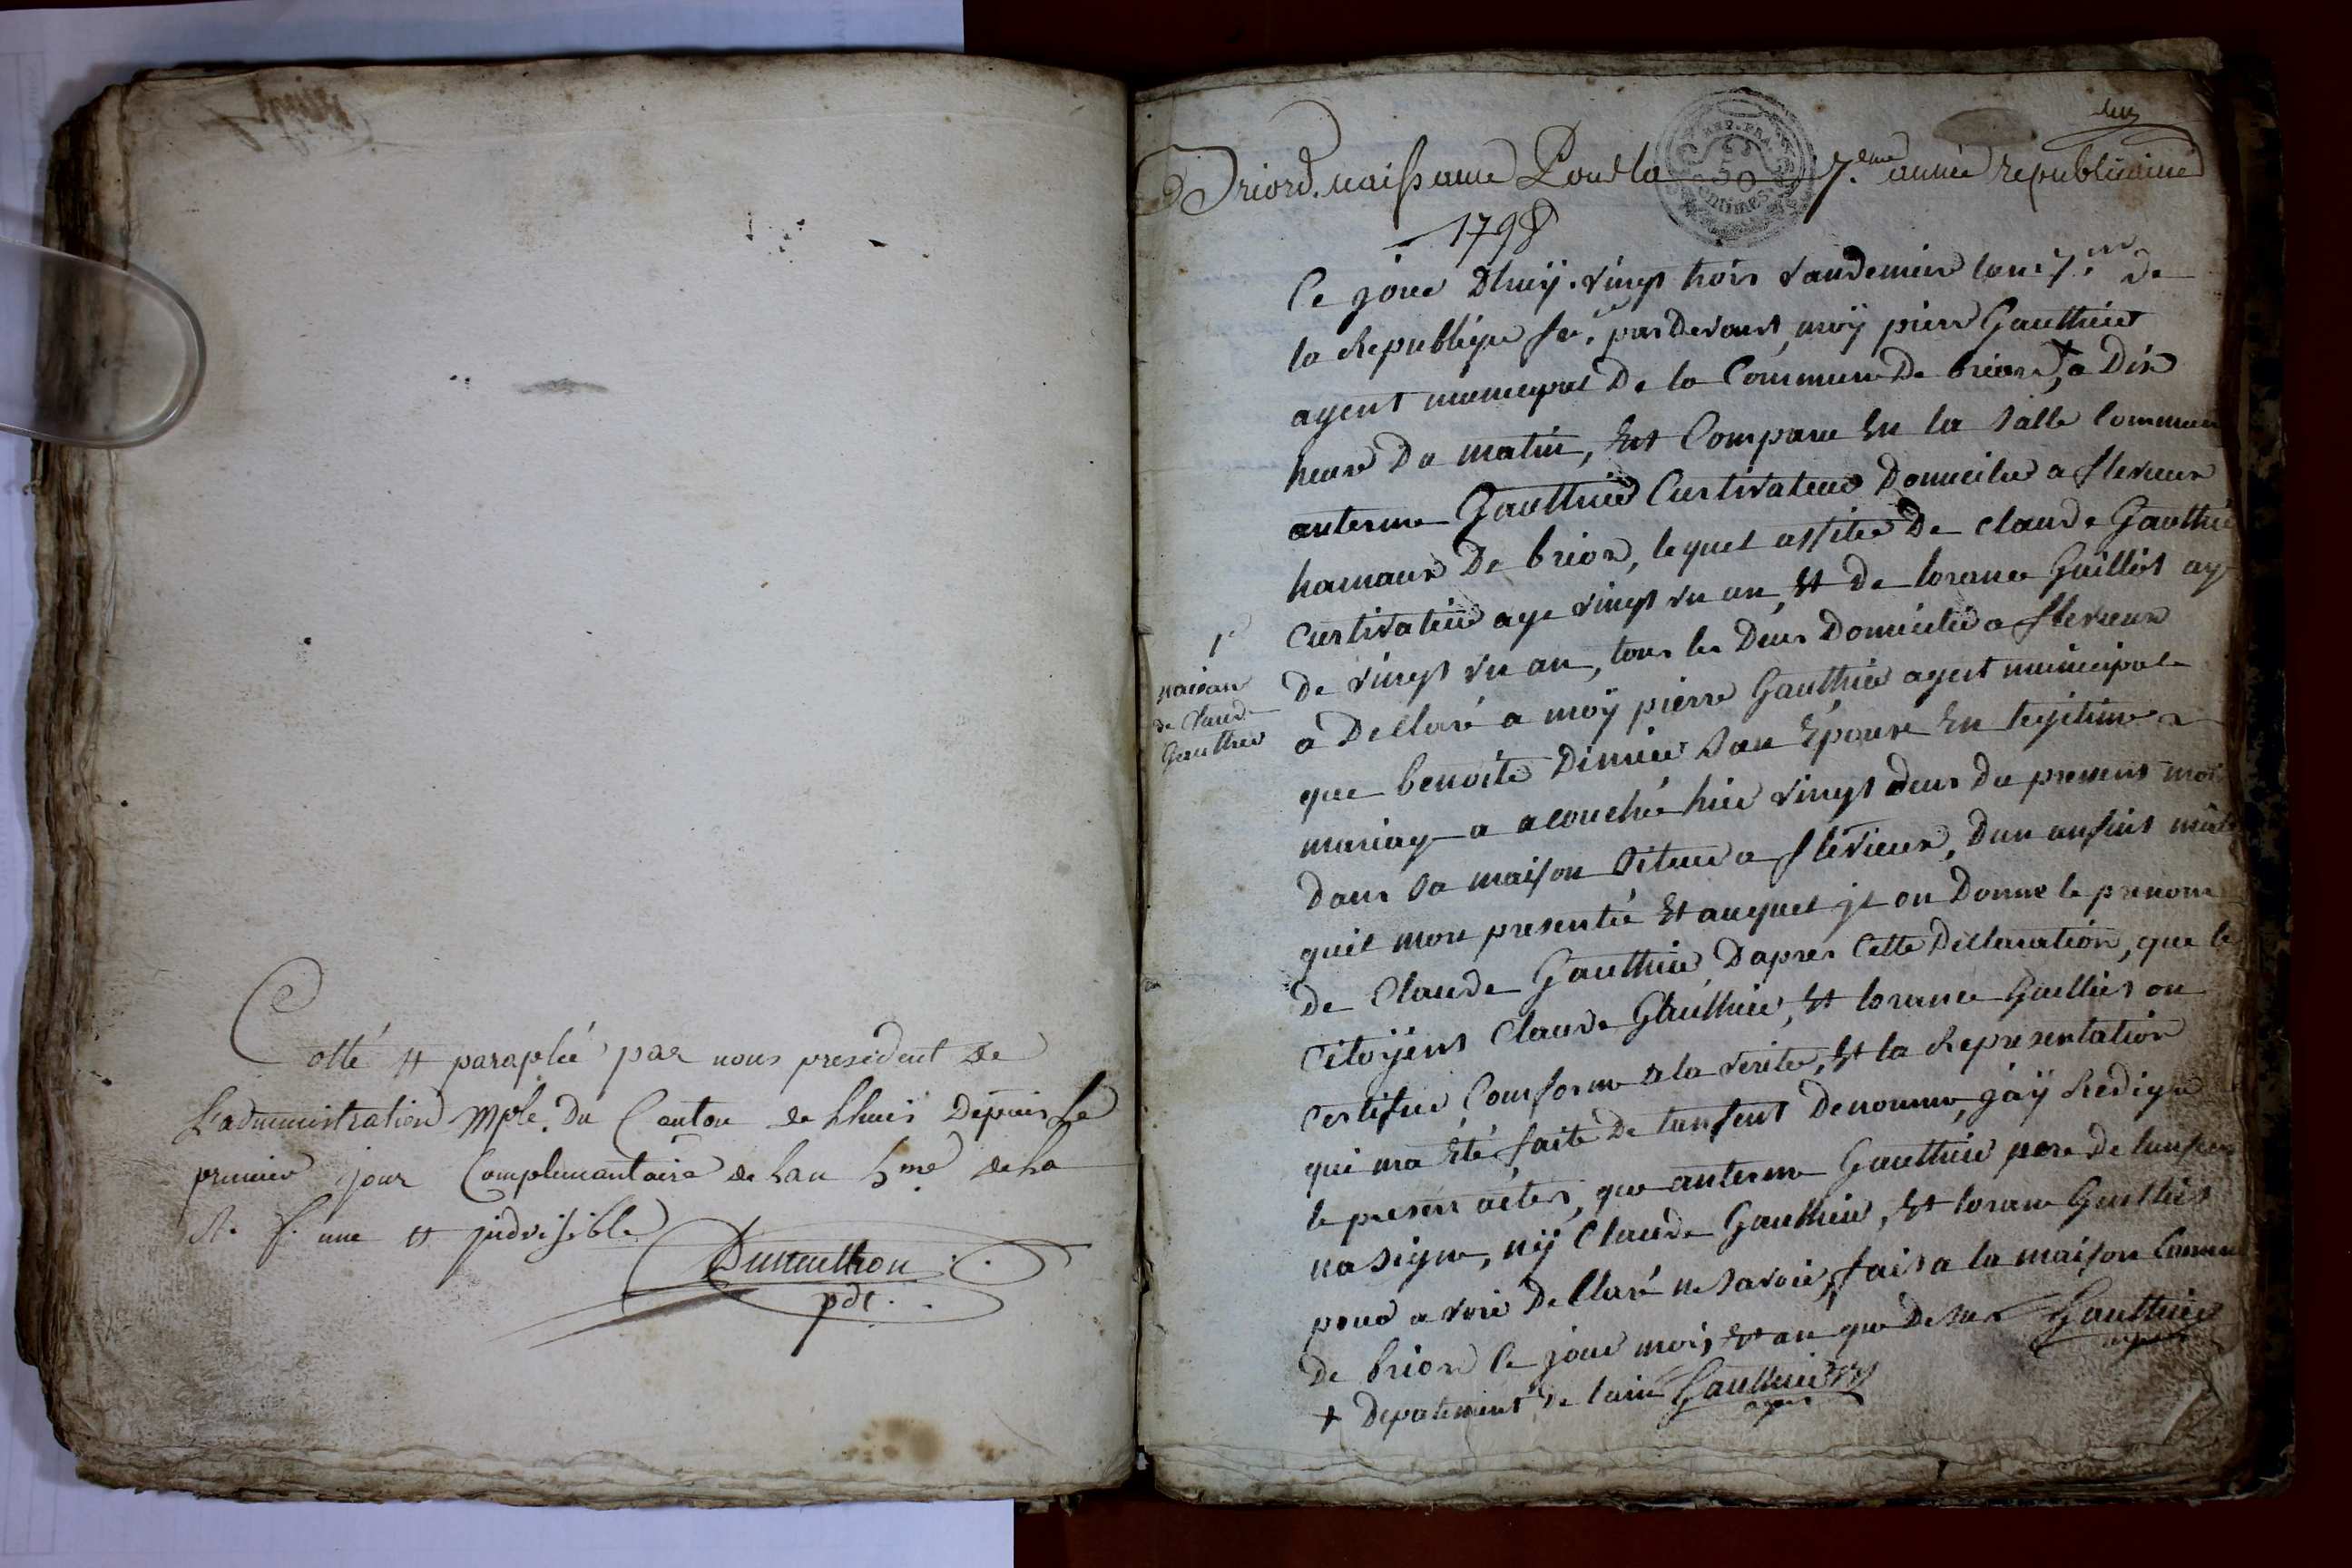 Cotté et paraphé par nous president de
L'administration Mple. Du Canton de Lhuis Depuis le
premier jour Complemantaire de Lan 6me de la
R. f. une et jndivisible
Dumarthon
pdt.
Briord. naissance Pour la 7.eme année republicaine
REP. FRA.
50
1798
Ce jour Dhuÿ. vingt trois vandemier lan 7.me de
la Republique fse. par Devant moÿ pierre Gauthier
agent municipal De la Commune De briord, + a Dix
heure Du matin, Est Comparu En la Salle Commun
anterme Gauthier Cultivateur Domicilié a flevieux
hamaux De brior, lequel assité De claude Gauthie
Cultivateur age vingt un an, Et de lorance Guillot ag
De vingt un an, tous les Deux Domicilié a flevieux
a Declaré a moÿ pierre Gauthier agent municipale
que benoite Dimier Son Epouse En legitime
mariage a acouchée hier vingt deux du presens moi
Dans Sa maison Situee a flevieux, Dun anfant mâle
quil mon presentée Et auquel jl on Donné le prenom
de Claude Gauthier, Dapres Cette Declaration, que le
Citoÿens Claude Gauthier, Et lorance Guilliet on
Certifié Comforme a la verité, Et la Representation
qui ma Eté faite De lanfant Denommé, jaÿ Redigé
le present actes, que anterme Gauthier pere De lanfan
na Signe, nÿ Claude Gauthier, Et lorance Guilliet
pour avoir Declaré ne Savoir, fait a la maison Commune
De brior le jour mois Et an que Desus Gauthier
agent
+ Depatement De lain Gauthier
agent
1e
naisan
de Claude
Gauthier